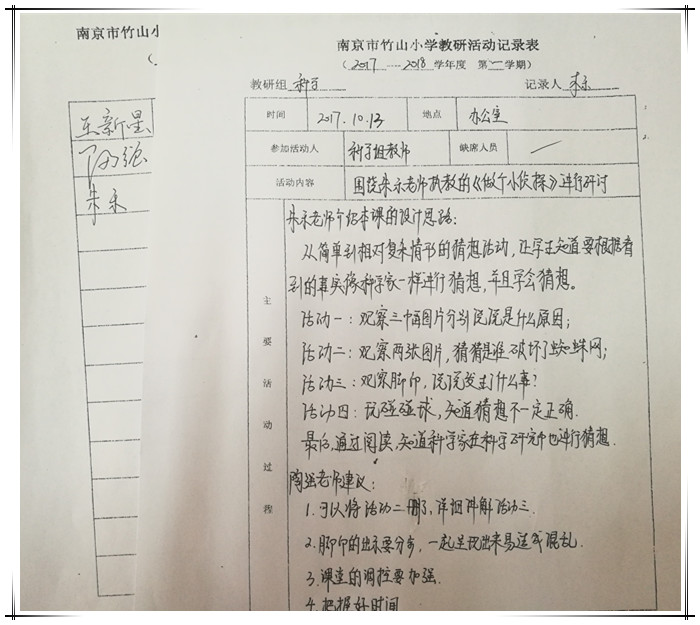 南京市竹山小
王新星
陶强
朱禾
南京市竹山小学教研活动记录表
（2017——2018学年度 第一学期）
教研组 科学 记录人 朱禾
时间 2017.10.13 地点 办公室
参加活动人 科学组教师 缺席人员
活动内容 围绕朱禾老师执教的《做个小侦探》进行研讨
主要活动过程
朱禾老师介绍本课的设计思路：
从简单到相对复杂情形的猜想活动，让学生知道要根据看
到的事实像科学家一样进行猜想，并且学会猜想。
活动一：观察三幅图片分别说说是什么原因；
活动二：观察两张图片，猜猜是谁破坏了蜘蛛网；
活动三：观察脚印，说说发生了什么事？
活动四：玩碰碰球，知道猜想不一定正确．
最后，通过阅读，知道科学家在科学研究中也进行猜想．
陶强老师建议：
1．可以将活动二删了，详细讲解活动三．
2．脚印的出示要分步，一起呈现出来易造成混乱．
3．课堂的调控要加强．
4．把握好时间